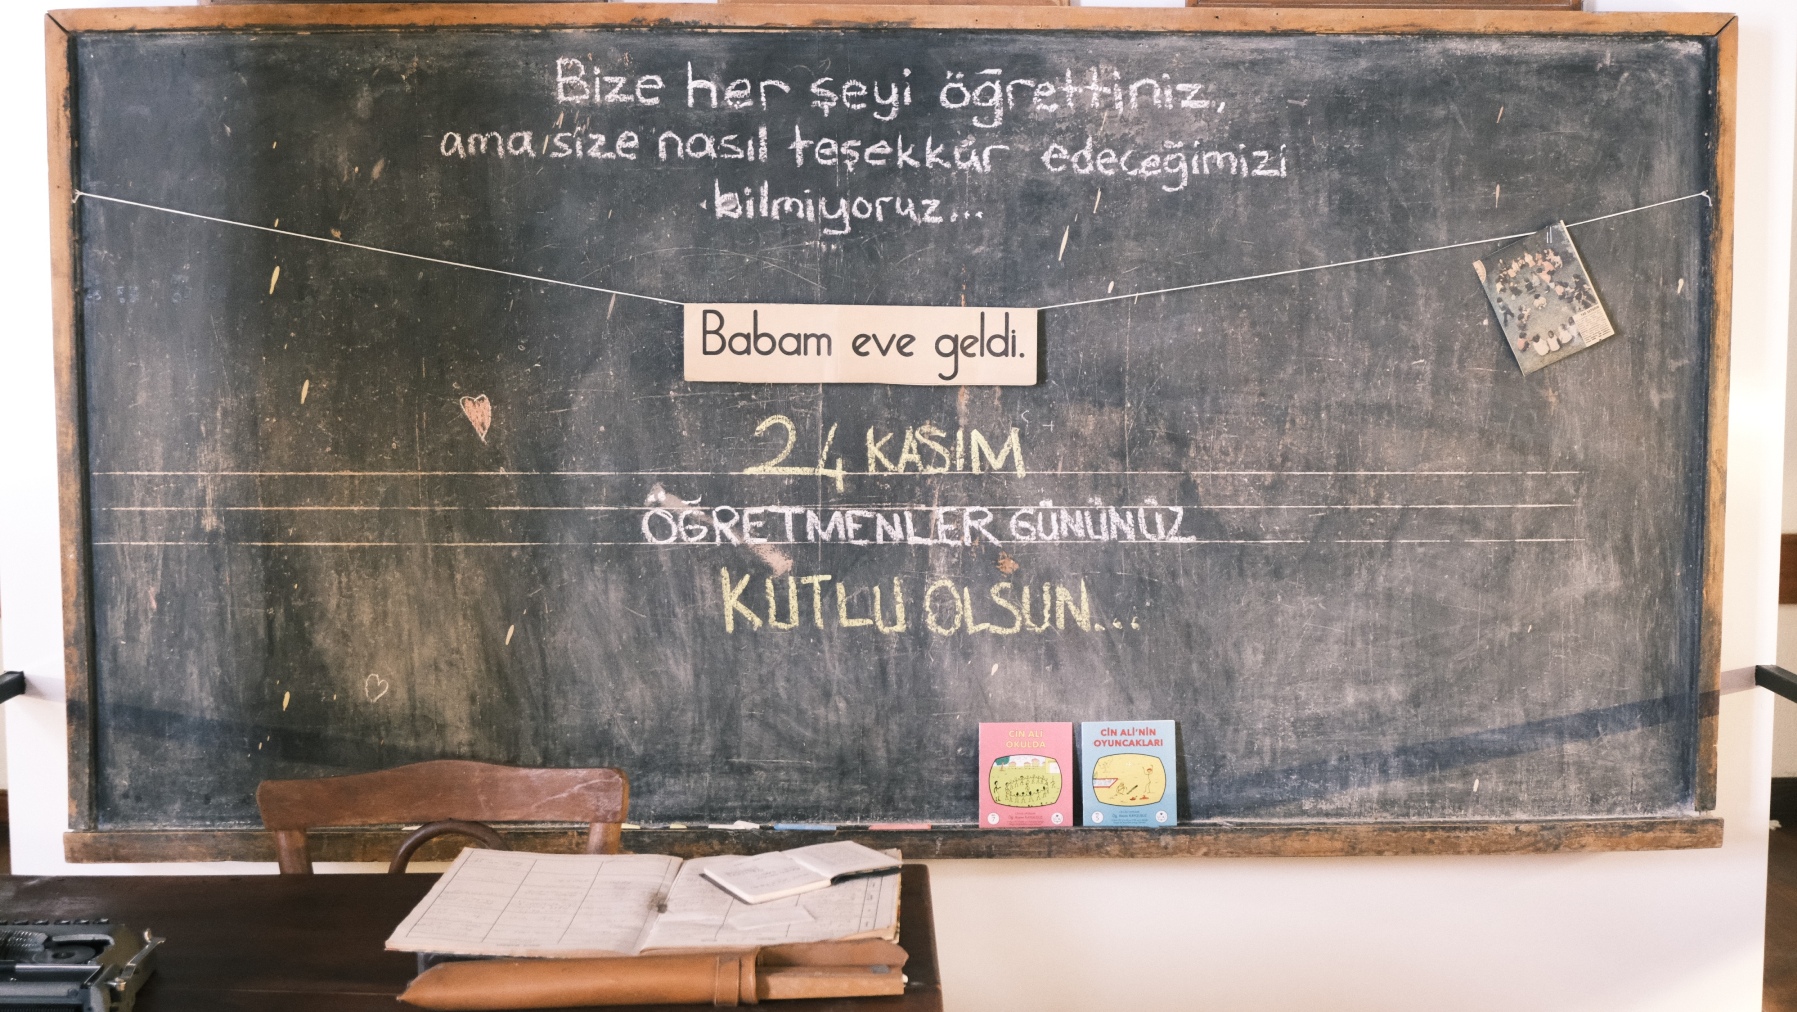 Bize her şeyi öğrettiniz,
ama size nasıl teşekkür edeceğimizi
bilmiyoruz...
Babam eve geldi.
24 KASIM
ÖĞRETMENLER GÜNÜNÜZ
KUTLU OLSUN...
CİN ALİ
OKULDA
CİN ALİ'NİN
OYUNCAKLARI